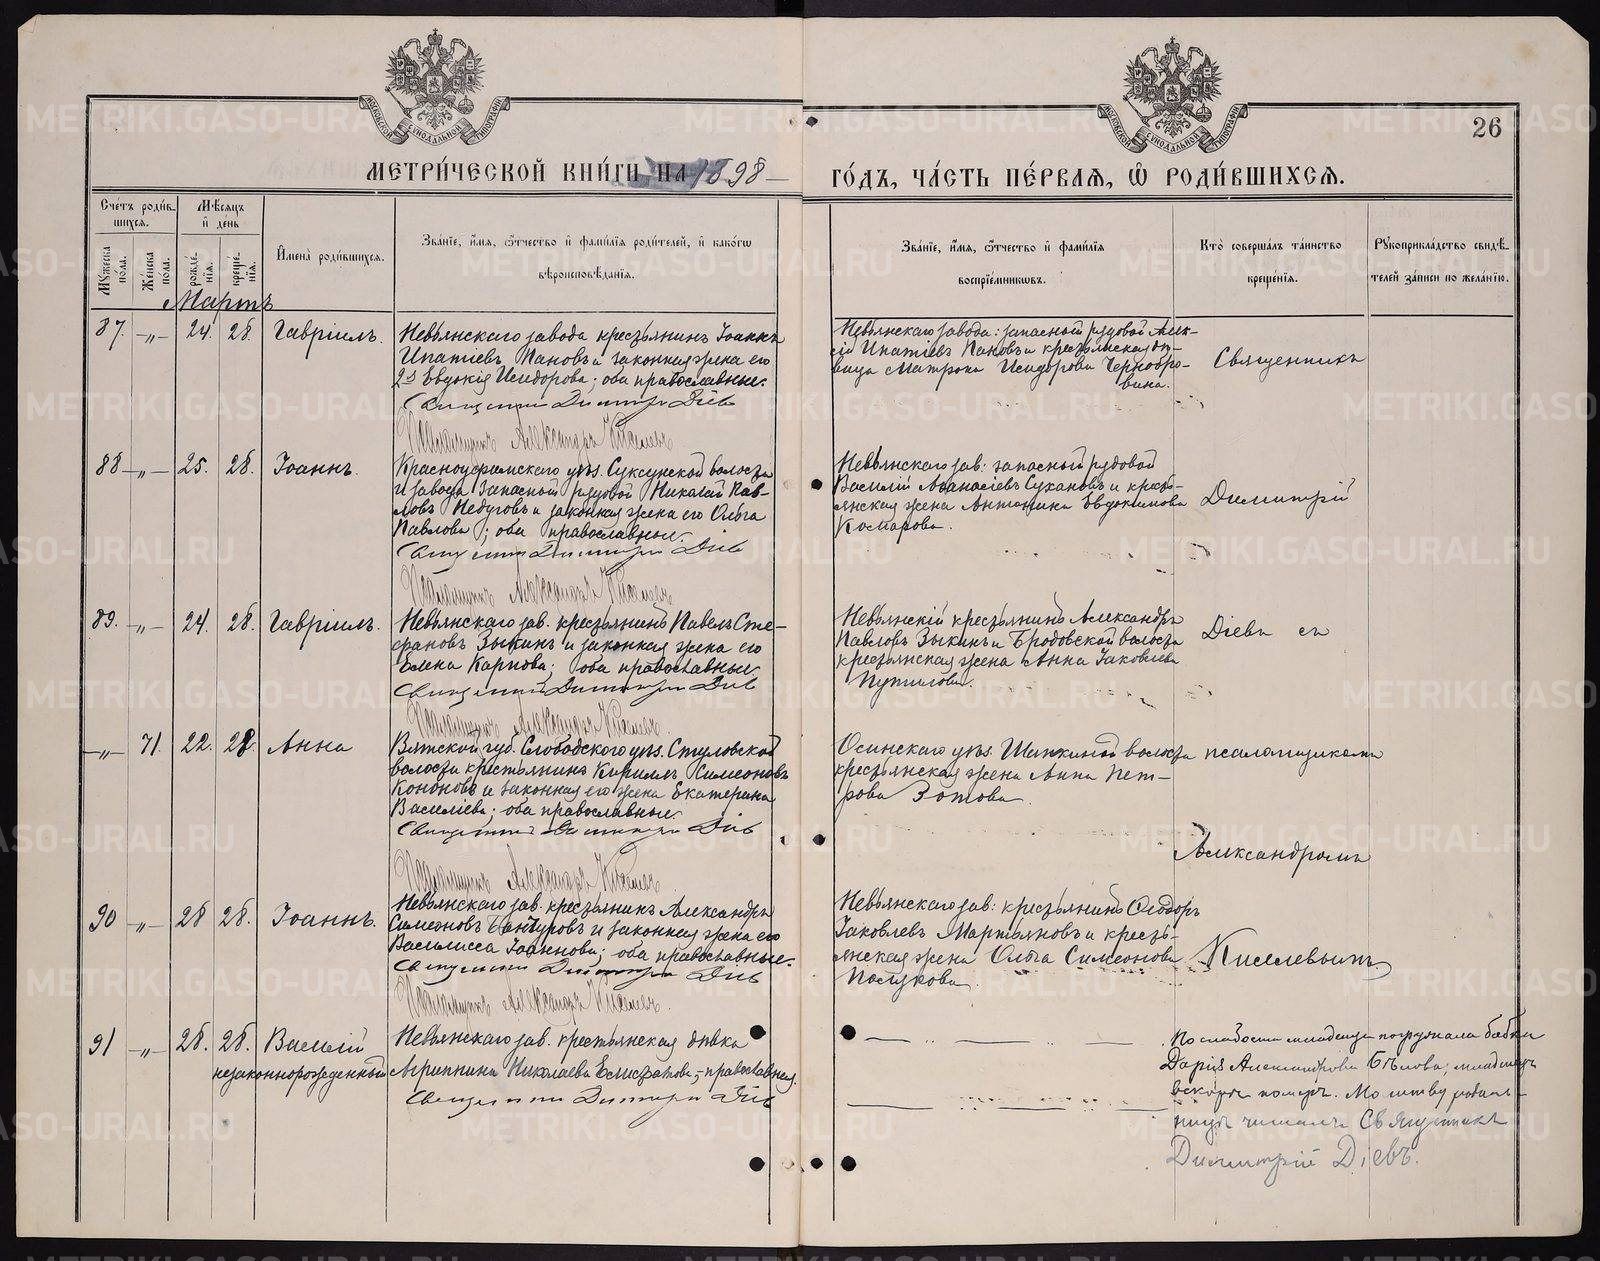 МОСКОВСКОЙ СѴНОДАЛЬНОЙ ТИПОГРАФІИ
МОСКОВСКОЙ СѴНОДАЛЬНОЙ ТИПОГРАФІИ
26
МЕТРИ́ЧЕСКОЙ КНИ́ГИ НА 1898
ГО́ДЪ, ЧА́СТЬ ПЕ́РВАЯ, Ѡ҆ РОДИ́ВШИХСЯ.
Сче́тъ роди́в-
шихся.
Мѣ́сяцъ
и҆ де́нь
Му́жеска
по́ла.
Же́нска
по́ла.
рожде́-
нїя.
креще́-
нїя.
И҆мена̀ роди́вшихся.
Зва́нїе, и҆́мя, ѻ҆́тчество и҆ фами́лїя роди́телей, и҆ како́гѡ
вѣроисповѣ́данїя.
Зва́нїе, и҆́мя, ѻ҆́тчество и҆ фами́лїя
воспрїе́мникѡвъ.
Кто̀ соверша́лъ та́инство
креще́нїя.
Рꙋкоприкла́дство свидѣ́-
телей за́писи по жела́нїю.
Мартъ
87. —„— 24. 28. Гавріилъ.
Невьянскаго завода крестьянинъ Іоаннъ
Ипатіевъ Пановъ и законная жена его
Евдокія Исидорова; оба православные.
Священникъ Димитрій Діевъ
Псаломщикъ Александръ Киселевъ
Невьянскаго завода: запасный рядовой Алек-
сій Ипатіевъ Пановъ и крестьянская дѣ-
вица Матрона Исидорова Чернобро-
вина.
Священникъ
88 —„— 25. 28. Іоаннъ.
Красноуфимскаго уѣз. Суксунской волости
и завода запасный рядовой Николай Пав-
ловъ и законная жена его Ольга
Павлова; оба православные.
Священникъ Димитрій Діевъ
Псаломщикъ Александръ Киселевъ
Невьянскаго зав: запасный рядовой
Василій Аѳанасіевъ Сухановъ и кресть-
янская жена Антонина Евдокимова
Димитрій
89. —„— 24. 28. Гавріилъ.
Невьянскаго зав. крестьянинъ Павелъ Сте-
фановъ Зыкинъ и законная жена его
Елена Карпова; оба православные.
Священникъ Димитрій Діевъ
Псаломщикъ Александръ Киселевъ
Невьянскій крестьянинъ Александръ
Павловъ Зыкинъ и Бродовской волости
крестьянская жена Анна Іаковлева
Діевъ съ
—„— 71. 22. 28. Анна
Вятской губ. Слободского уѣз. Стуловской
волости крестьянинъ Кириллъ Симеоновъ
Кононовъ и законная его жена Екатерина
Василіева; оба православные.
Священникъ Димитрій Діевъ
Псаломщикъ Александръ Киселевъ
Осинскаго уѣз. волости
крестьянская жена Анна Пет-
рова Зотова.
псаломщикомъ
Александромъ
90 —„— 28 28. Іоаннъ.
Невьянскаго зав. крестьянинъ Александръ
Симеоновъ и законная жена его
Василисса Іоаннова; оба православные.
Священникъ Димитрій Діевъ
Псаломщикъ Александръ Киселевъ.
Невьянскаго зав: крестьянинъ Ѳеодоръ
Іаковлевъ Мартьяновъ и кресть-
янская жена Ольга Симеонова
Киселевымъ.
91 —„— 28. 28. Василій
незаконнорожденный
Невьянскаго зав. крестьянская дѣвка
Агриппина Николаева; православная.
Священникъ Димитрій Діевъ
По слабости младенца погружала бабка
Дарія Александрова Бѣлова; младенецъ
вскорѣ померъ. Молитву родиль-
ницѣ читалъ Священникъ
Димитрій Діевъ.
METRIKI.GASO-URAL.RU